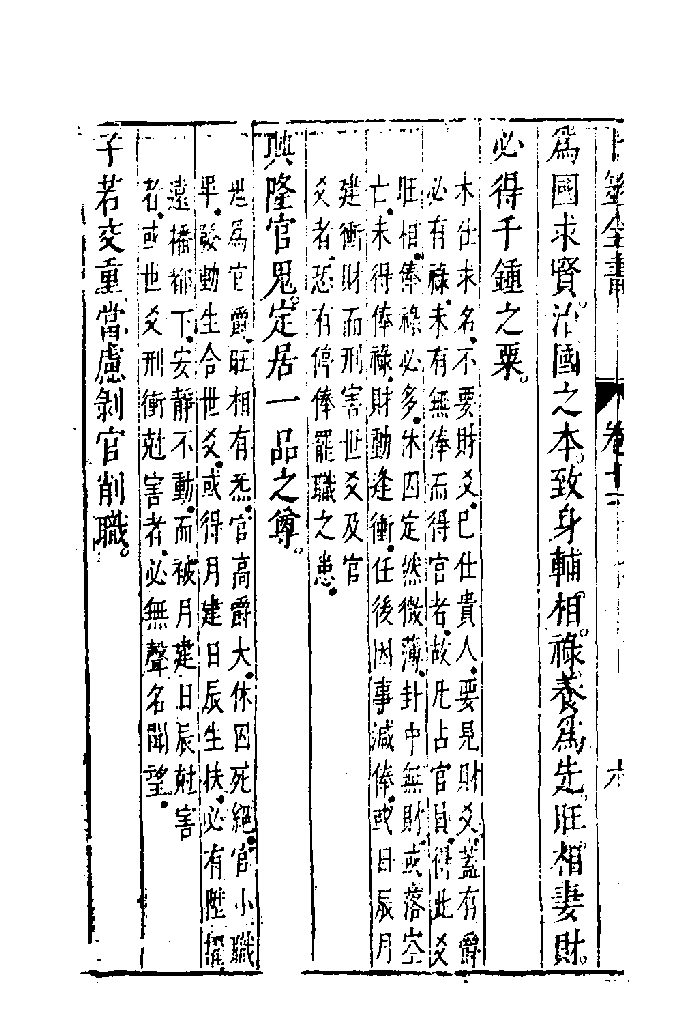 卜筮全書 卷十二 六
為國求賢。治國之本。致身輔相。祿養為先。旺相妻財。
必得千鍾之粟。
未仕求名。不要財爻。已仕貴人。要見財爻。蓋有爵
必有祿。未有無俸而得官者。故凡占官。皆得此爻
旺相。俸祿必多。休囚定然微薄。卦中無財。或落空
亡。未得俸祿。財動逢衝。任後因事減俸。或日辰月
建衝財而刑害世爻及官
爻者。恐有停俸罷職之患。
興隆官鬼。定居一品之尊。
鬼為官爵。旺相有炁。官高爵大。休囚死絕。官小職
卑。發動生合世爻。或得月建日辰生扶。必有陞擢
遠播都下。安靜不動。而被月建日辰尅害
者。或世爻刑衝尅害者。必無聲名聞望。
子若交重。當慮剝官削職。